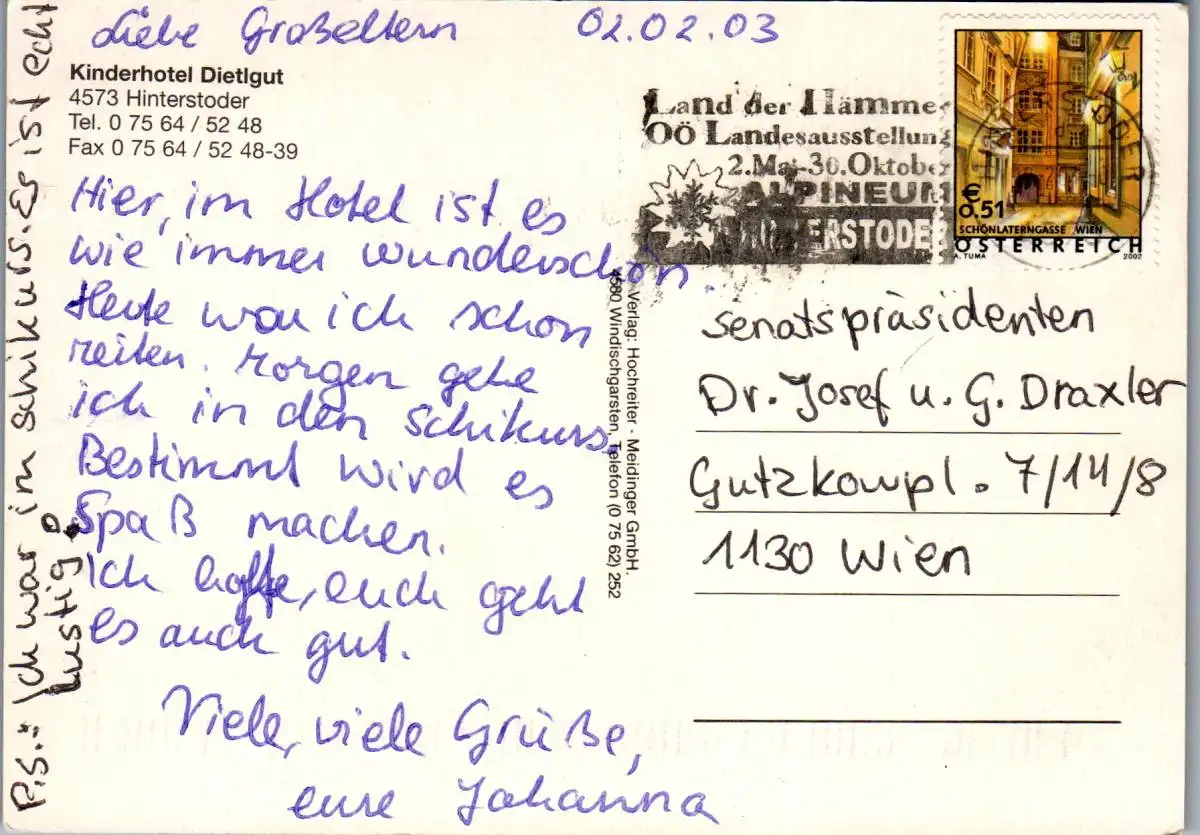 Liebe Großeltern 02.02.03
Kinderhotel Dietlgut
4573 Hinterstoder
Tel. 0 75 64 / 52 48
Fax 0 75 64 / 52 48-39
Hier, im Hotel ist es
wie immer wunderschön.
Heute war ich schon
reiten. Morgen gehe
ich in den Schikurs.
Bestimmt wird es
Spaß machen.
Ich hoffe, euch geht
es auch gut.
Viele, viele Grüße,
eure Johanna
P.S.: Ich war im Schikurs. Es ist echt
lustig!
Verlag: Hochreiter - Meidinger GmbH.
4580 Windischgarsten, Telefon (0 75 62) 252
Land der Hämmer
OÖ Landesausstellung
2.Mai-30.Oktober
ALPINEUM
HINTERSTODER
€
0.51
SCHÖNLATERNGASSE WIEN
ÖSTERREICH
A. TUMA 2002
Senatspräsidenten
Dr. Josef u. G. Draxler
Gutzkowpl. 7/14/8
1130 Wien